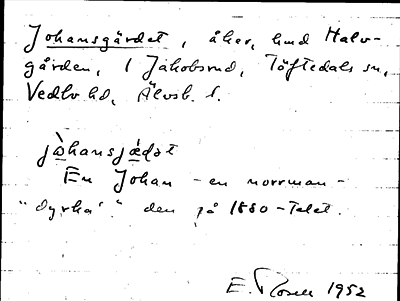 Johansgärdet, åker, hmd Halv-
gården, 1 Jakobsrud, Töftedals sn,
Vedbo hd, Älvsb. l.
jòhansjæ̀dət
En Johan - en norrman -
"dyrka'" den på 1880-talet.
E. Rosell 1952